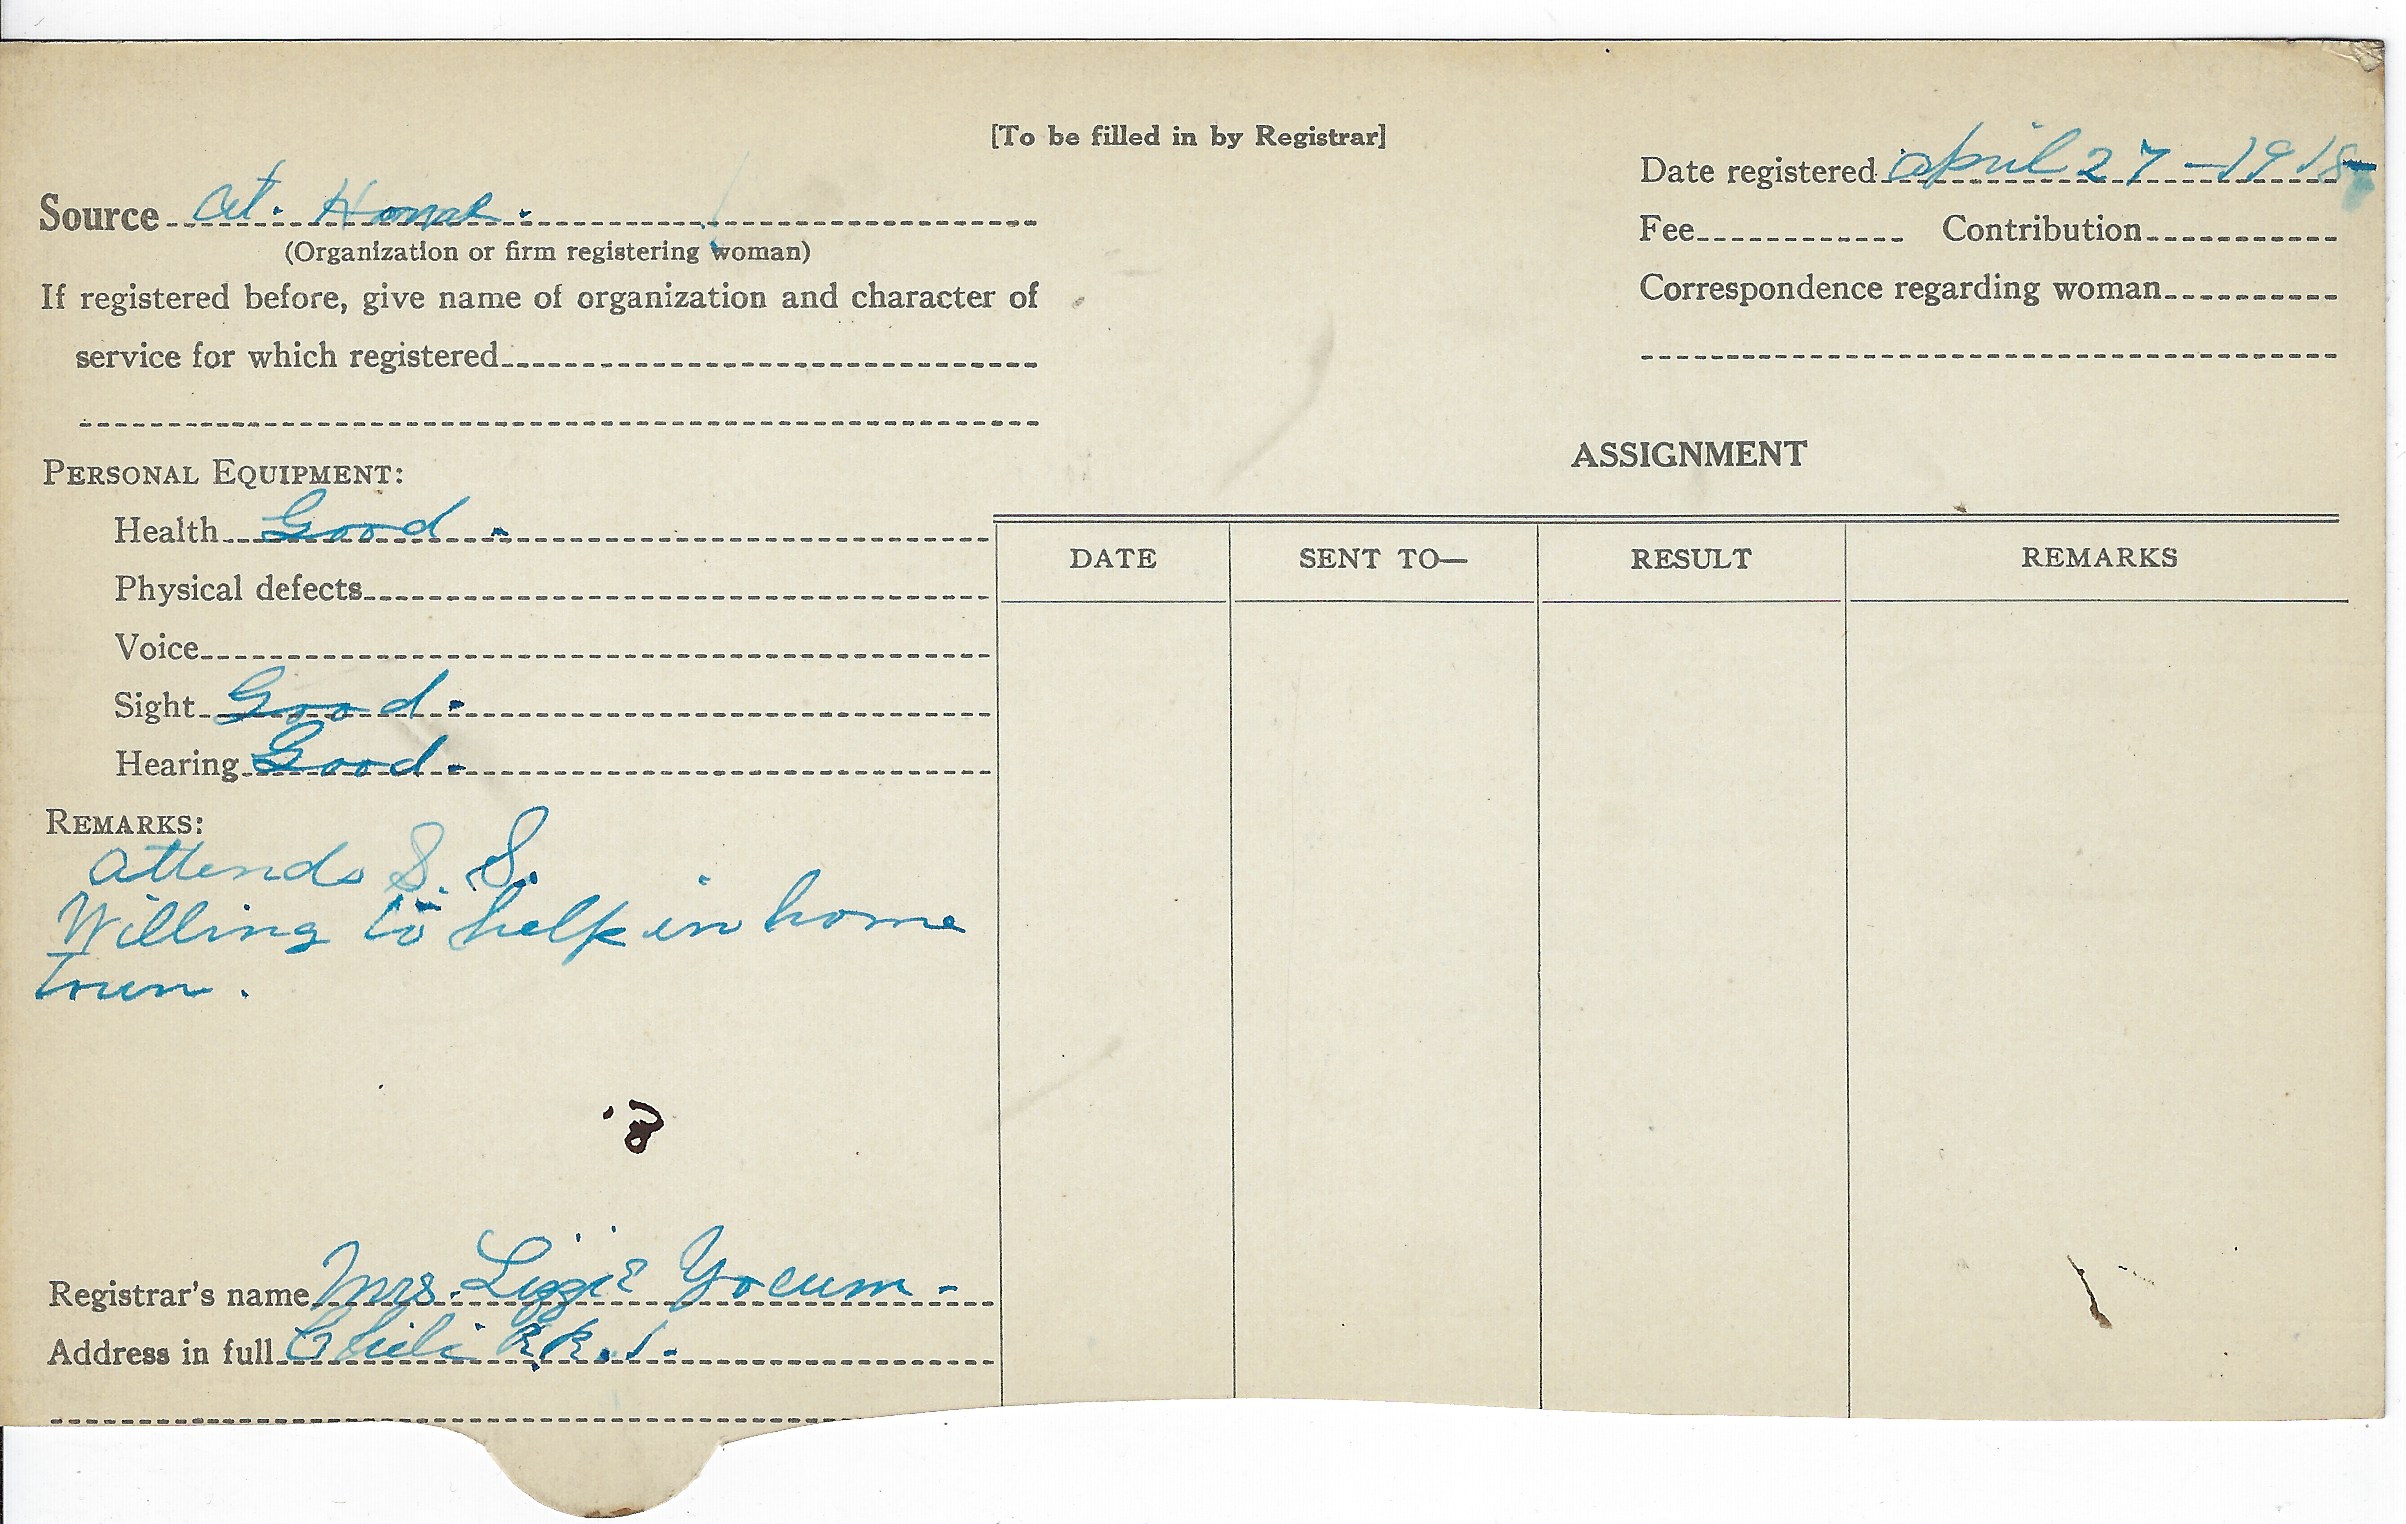 [To be filled in by Registrar]
Source At. Home.
(Organization or firm registering woman)
If registered before, give name of organization and character of
service for which registered
Date registered April 27-1918
Fee Contribution
Correspondence regarding woman
PERSONAL EQUIPMENT:
Health Good.
Physical defects
Voice
Sight Good.
Hearing Good.
REMARKS:
Attends S. S.
Willing to help in home
town.
Registrar's name Mrs. Lizzie Yocum-
Address in full Chili R.R.1.
ASSIGNMENT
DATE SENT TO— RESULT REMARKS